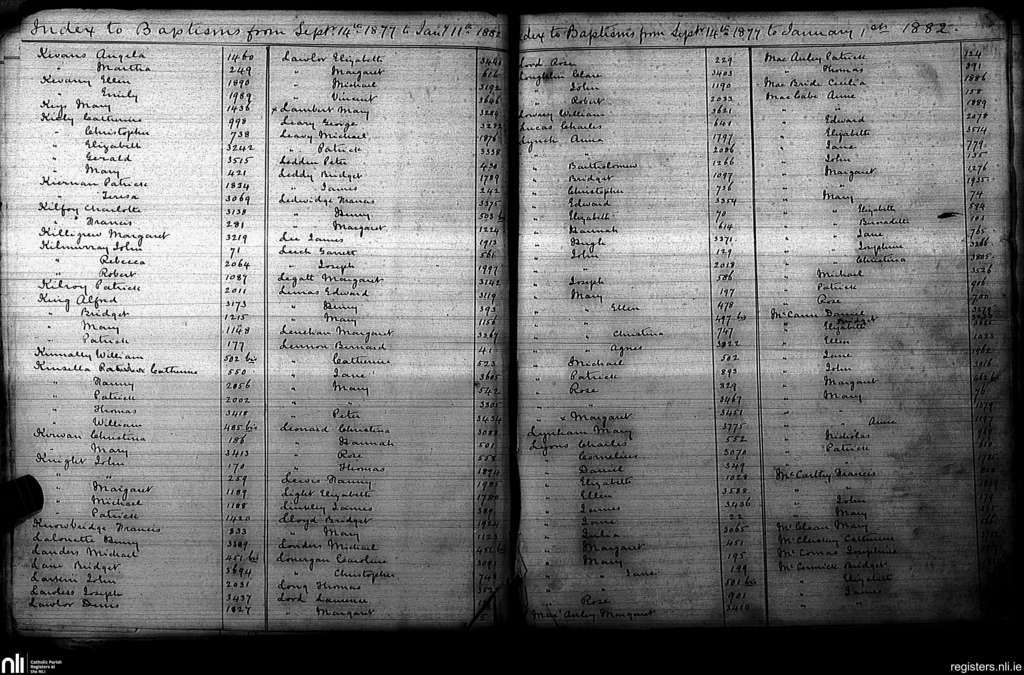 Index to Baptisms from Sept. 14th 1877 to Jany 11th 1882
Kivans Angela 1460
" Martha 249
Kivany Ellen 1890
" Emily 1989
Keys Mary 1436
Kiely Catherine 998
" Christopher 738
" Elizabeth 3242
" Gerald 3515
" Mary 421
Kiernan Patrick 1834
" Teresa 3069
Kilfoy Charlotte 3138
" Francis 281
Killigrew Margaret 3219
Kilmurray John 71
" Rebecca 2064
" Robert 1087
Kilroy Patrick 2011
King Alfred 3173
" Bridget 1215
" Mary 1148
" Patrick 177
Kinnally William 502 bis
Kinsella Catherine 550
" Fanny 2056
" Patrick 2002
" Thomas 3418
" William 485 bis
Kirwan Christina 186
" Mary 3413
Knight John 170
" " 259
" Margaret 1189
" Michael 1188
" Patrick 1420
Knowbridge Francis 833
Lalouette Henry 3389
Landers Michael 451 bis
Lane Bridget 3694
Larkin John 2031
Lawless Joseph 3437
Lawlor Denis 1827
Lawlor Elizabeth
" Margaret 616
" Michael 3192
" Vincent 3646
x Lambert Mary 3284
Leary George
Leavy Michael 1876
" Patrick 3338
Ledden Peter 430
Leddy Bridget 1789
" James 242
Ledwidge Francis 3375
" Henry 503 bis
" Margaret 1224
Lee James 1913
Leech Garrett 561
" Joseph 1997
Legatt Margaret 3142
Lemas Edward 3119
" Henry 393
" Mary 1156
Lenehan Margaret 3367
Lennon Bernard 41
" Catherine 523
" Jane 3605
" Mary 542
" " 3305
" Peter 3434
Leonard Christina 3083
" Hannah 501
" Rose 558
" Thomas 1894
Lewis Fanny 1905
Light Elizabeth 1780
Linsley James 389
Lloyd Bridget 1924
" Mary 1123
Londers Michael 451 bis
Lonergan Caroline 3091
" Christopher 748
Long Thomas
Lord Laurence
" Margaret
Index to Baptisms from Septr 14th 1877 to January 1st 1882.
Lord Rose 229
Loughlin Clare 3403
" John 1190
" Robert 2033
Lowry William 3621
Lucas Charles 641
Lynch Anne 1797
" " 2086
" Bartholomew 1266
" Bridget 1097
" Christopher 736
" Edward 3354
" Elizabeth 70
" Hannah 614
" Hugh 3371
" John 129
" " 2018
" Joseph 586
" Mary 197
" " Ellen 478
" " 497 bis
" " Christina 747
" " Agnes 3022
" Michael 502
" Patrick 893
" Rose 329
" " 3467
" x Margaret 3451
Lynham Mary 3775
Lyons Charles 552
" Cornelius 3070
" Daniel 349
" Elizabeth 1028
" Ellen 3588
" James 3436
" Jane 22
" Julia 3065
" Margaret 451
" Mary 195
" " Jane 199
" " 501 bis
" Rose 901
MacAuley Margaret 3410
Mac Auley Patrick 324
" Thomas 391
Mac Bride Cecilia 1886
Mac Cabe Anne 158
" " 1889
" Edward 2078
" Elizabeth 3514
" Jane 779
" John 135
" Margaret 1276
" " 1935
" Mary 74
" " Elizabeth 594
" " Bernadette 101
" " Jane 765
" " Josephine 3266
" " Christina 3805
" Michael 3526
" Patrick 906
" Rose 700
McCann Daniel
" Elizabeth
" Ellen 1033
" Jane 1962
" John 3816
" Margaret
" Mary 76
" "
" " Anne
" Nicholas
" Patrick
" "
McCarthy Francis
" "
" John
" Mary
McClean Mary
McCluskey Catherine
McComas Josephine
McCormick Bridget
" Elizabeth
" James
" "
nli
Catholic Parish
Registers at
the NLI
registers.nli.ie